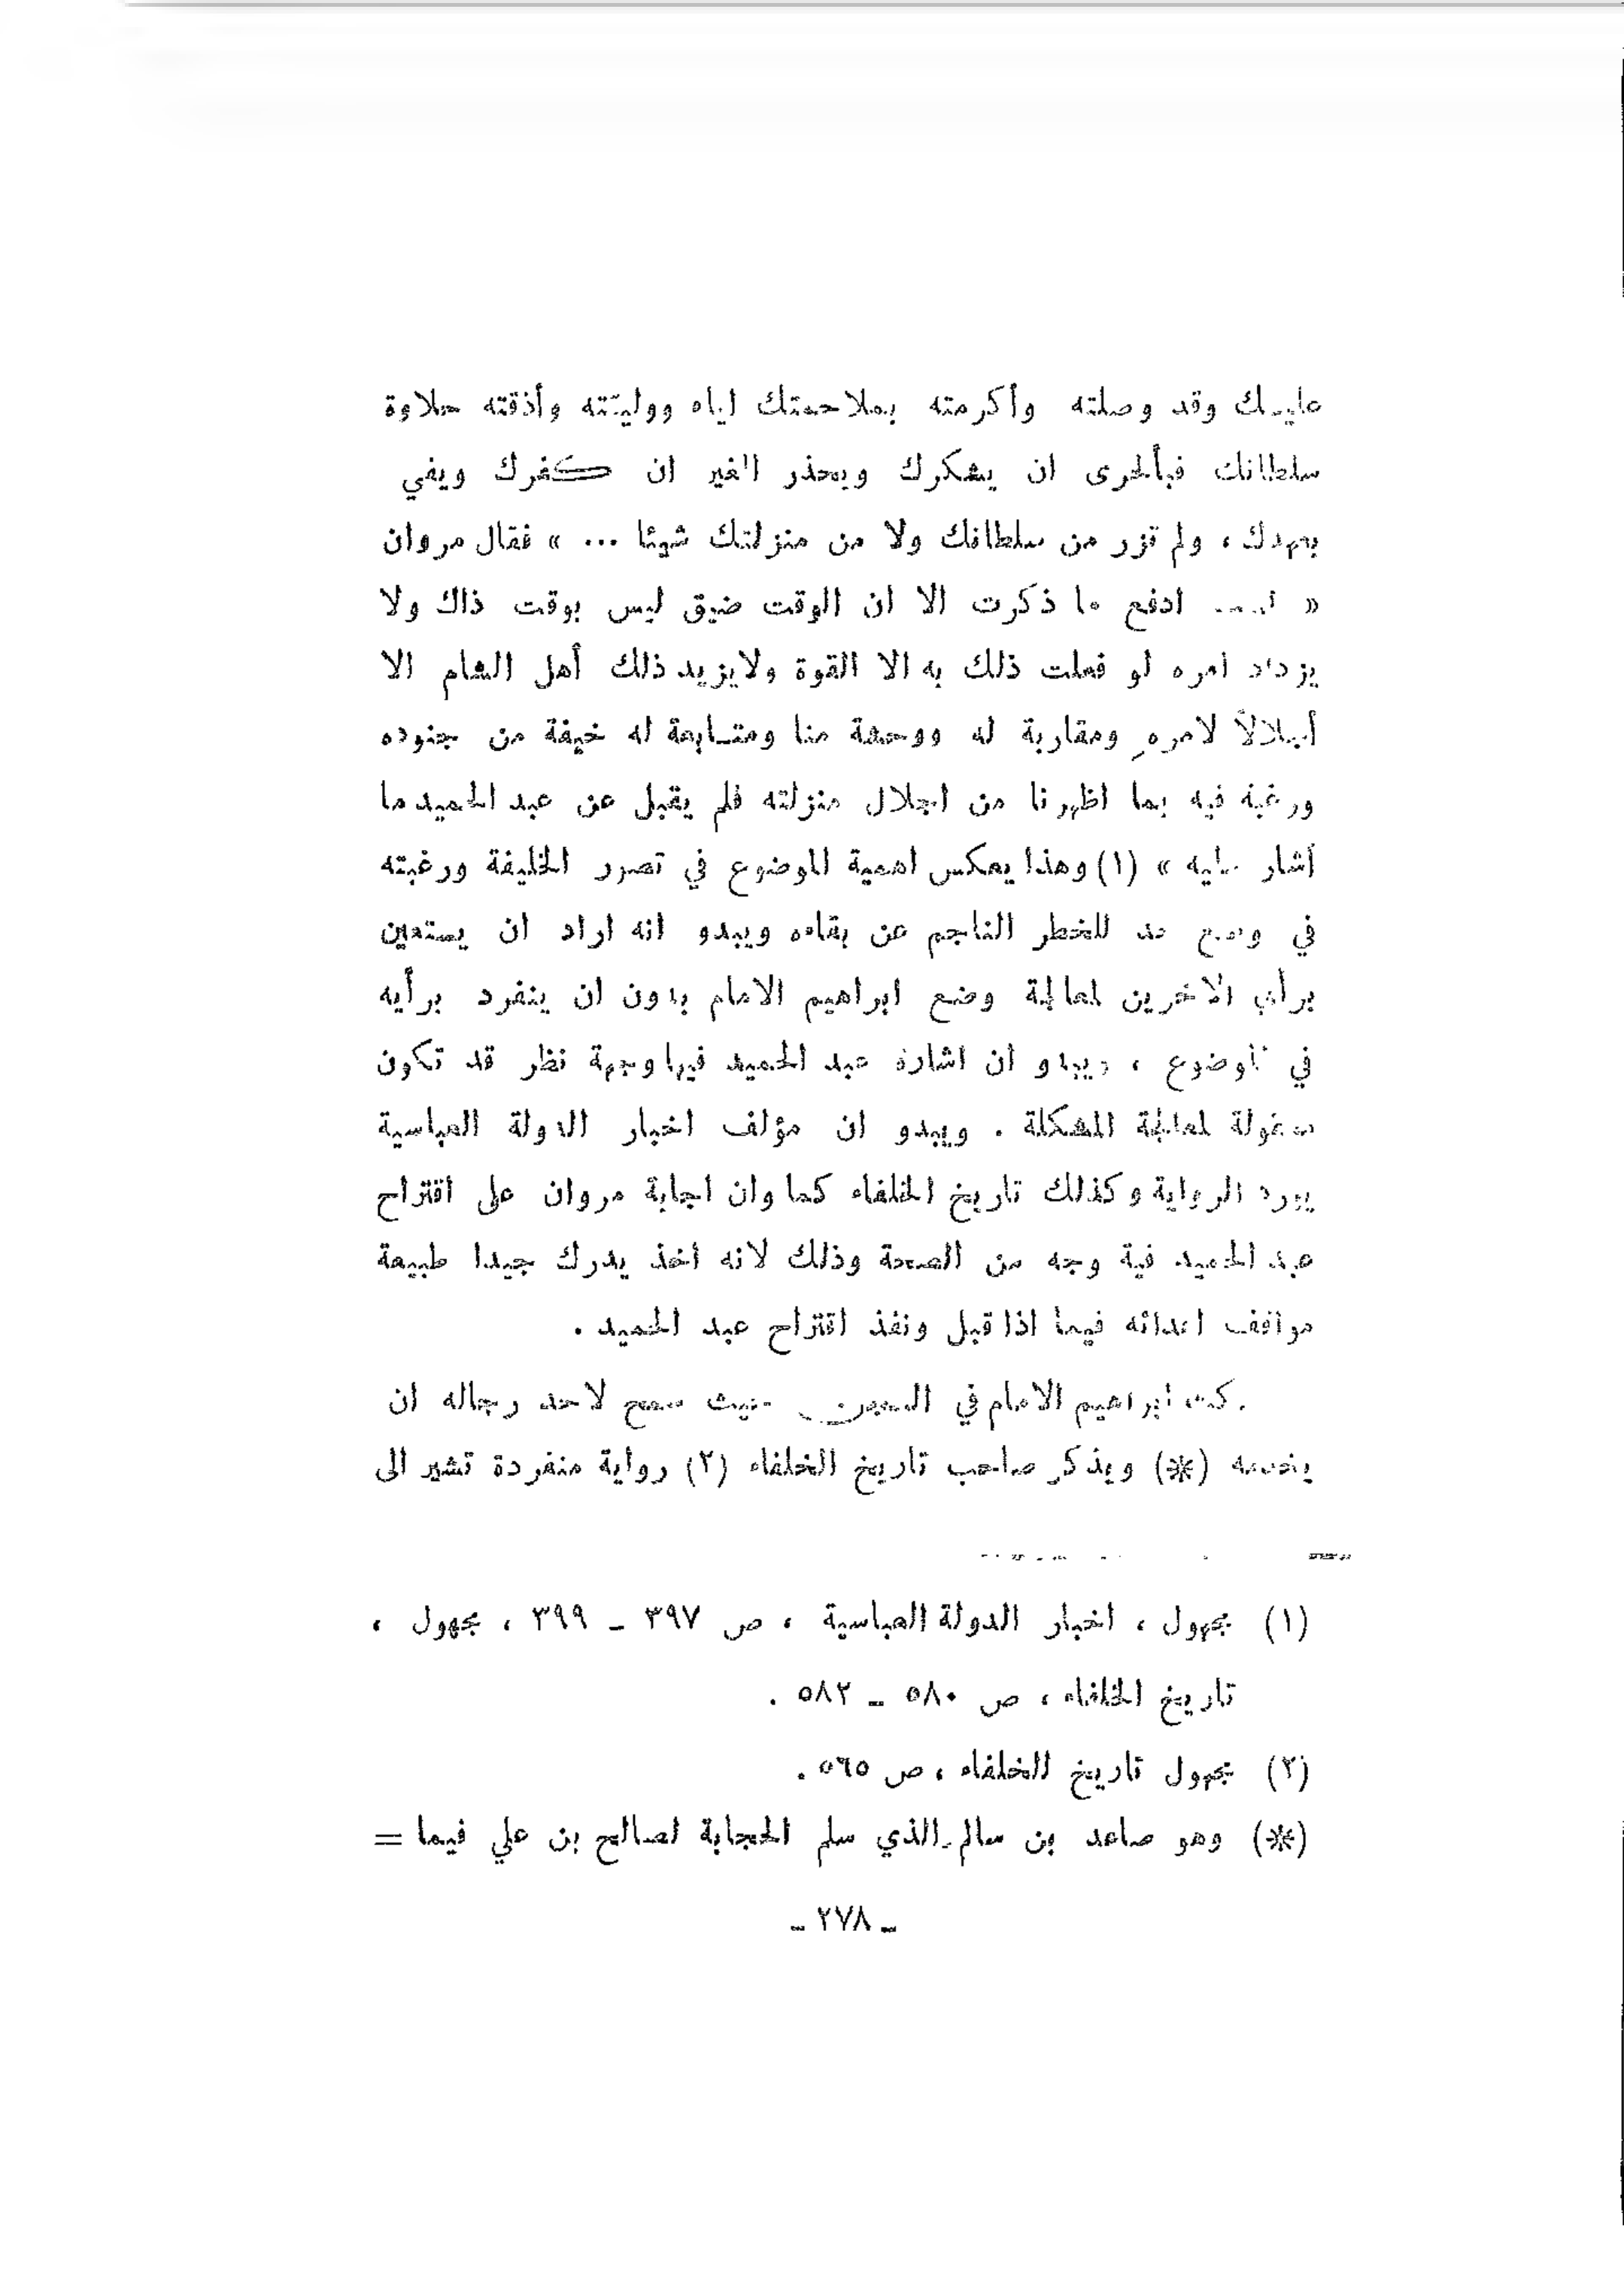 عليك وقد وصلته وأكرمته بملاحمتك اياه ووليته وأذقته حلاوة
سلطانك فبألحرى ان يشكرك ويحذر الغير ان كفرك ويفي
بعهدك ، ولم تزر من سلطانك ولا من منزلتك شيئا ... » فقال مروان
« ادفع ما ذكرت الا ان الوقت ضيق ليس بوقت ذاك ولا
يزداد امره لو فعلت ذلك به الا القوة ولايزيد ذلك أهل الشام الا
لامره ومقاربة له ووحشة منا ومتابعة له خيفة من جنوده
ورغبة فيه بما اظهرنا من اجلال منزلته فلم يقبل عن عبد الحميد ما
أشار عليه » (١) وهذا يعكس اهمية الموضوع في تصور الخليفة ورغبته
في وضع حد للخطر الناجم عن بقاءه ويبدو انه اراد ان يستعين
برأي الاخرين لمعالجة وضع ابراهيم الامام بدون ان ينفرد برأيه
في الموضوع ، ويبدو ان اشارة عبد الحميد فيها وجهة نظر قد تكون
معقولة لمعالجة المشكلة . ويبدو ان مؤلف اخبار الدولة العباسية
يورد الرواية وكذلك تاريخ الخلفاء كما وان اجابة مروان على اقتراح
عبد الحميد فية وجه من الصحة وذلك لانه اخذ يدرك جيدا طبيعة
مواقف اعدائه فيما اذا قبل ونفذ اقتراح عبد الحميد .
مكث ابراهيم الامام في السجن حيث سمح لاحد رجاله ان
يخدمه (*) ويذكر صاحب تاريخ الخلفاء (٢) رواية منفردة تشير الى
(١) مجهول ، اخبار الدولة العباسية ، ص ٣٩٧ ـ ٣٩٩ ، مجهول ،
تاريخ الخلفاء ، ص ٥٨٠ ـ ٥٨٢ .
(٢) مجهول تاريخ الخلفاء ، ص ٥٦٥ .
(*) وهو صاعد بن سالم الذي سلم الحجابة لصالح بن علي فيما =
ـ ٢٧٨ ـ